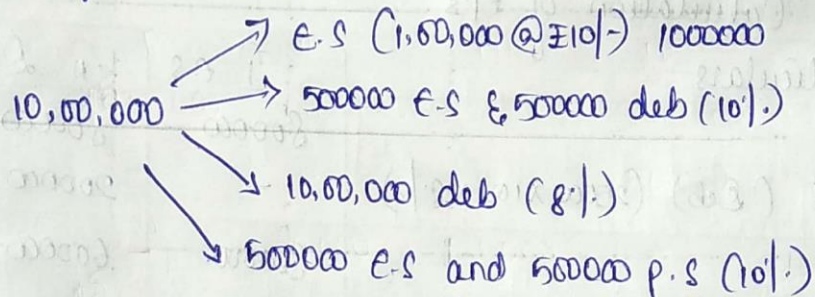 E.S (1,00,000 @ ₹10/-) 1000000
10,00,000
500000 E.S & 500000 deb (10%.)
10,00,000 deb (8%.)
500000 E.S and 500000 P.S (10%.)